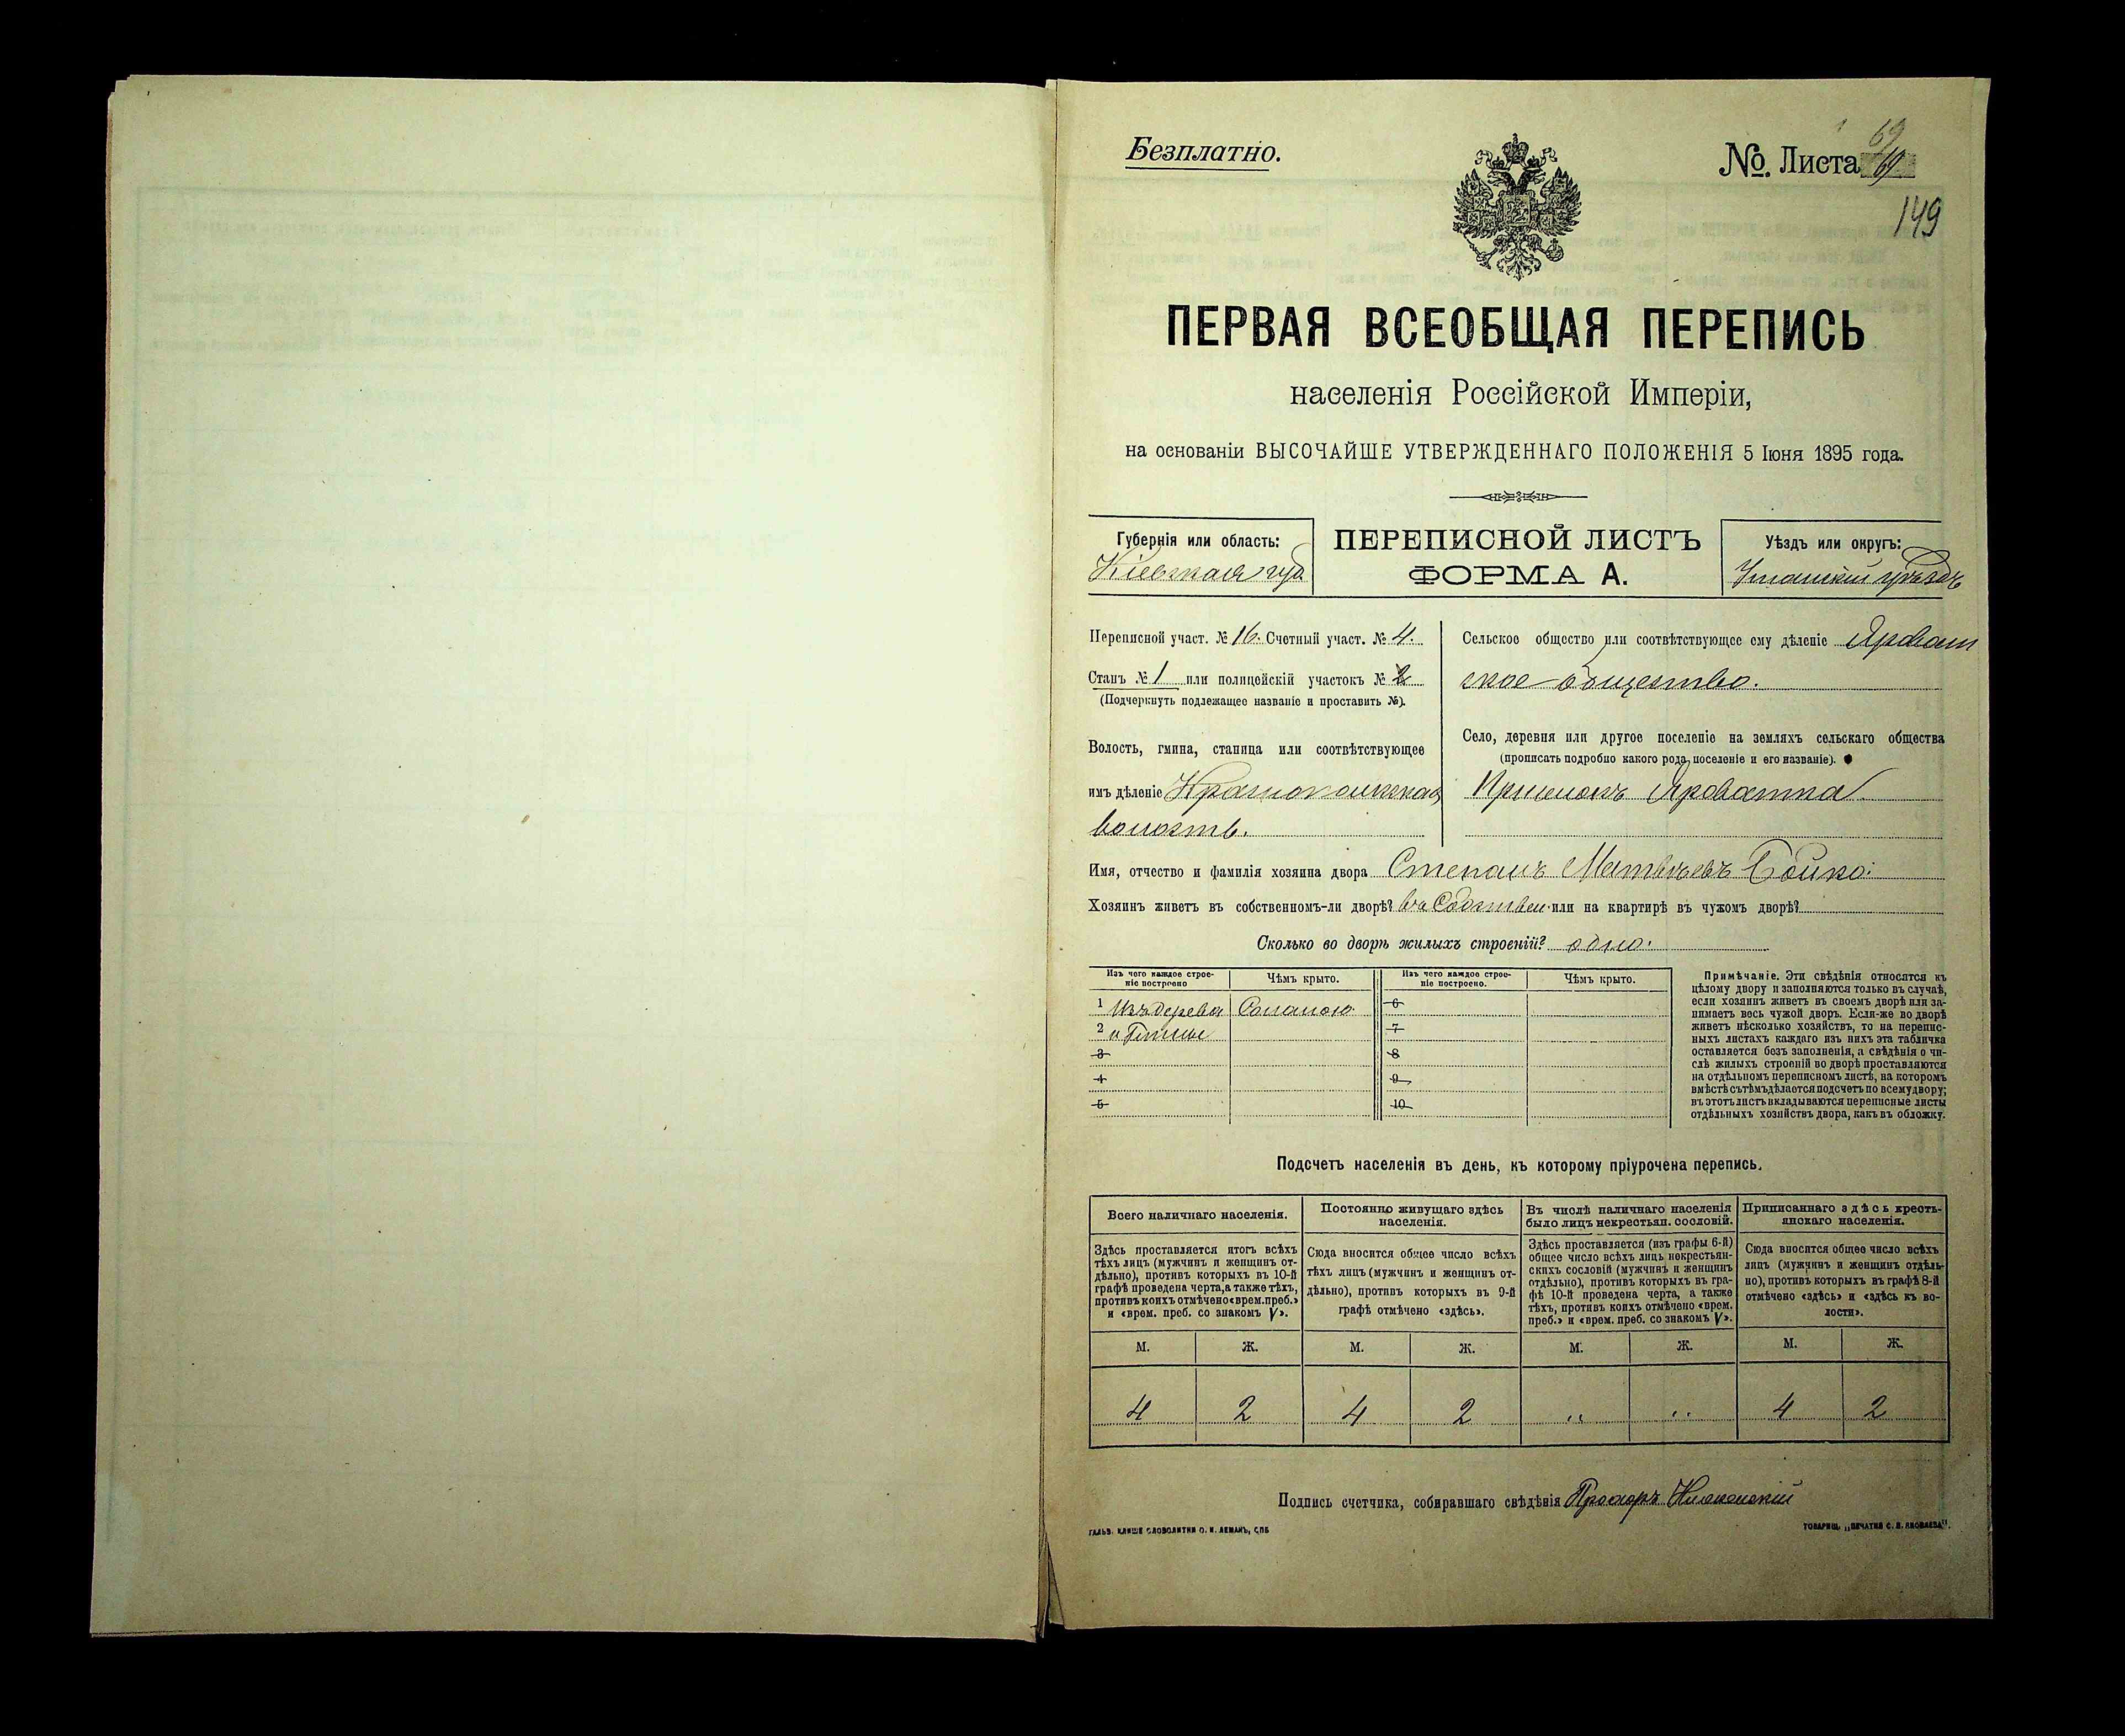 Безплатно.
№. Листа 69
69
149
ПЕРВАЯ ВСЕОБЩАЯ ПЕРЕПИСЬ
населенія Россійской Имперіи,
на основаніи ВЫСОЧАЙШЕ УТВЕРЖДЕННАГО ПОЛОЖЕНІЯ 5 Іюня 1895 года.
Губернія или область:
Кіевская губ
ПЕРЕПИСНОЙ ЛИСТЪ
ФОРМА А.
Уѣздъ или округъ:
Уманскій уѣздъ
Переписной участ. № 16. Счетный участ. № 4.
Станъ № 1 или полицейскій участокъ № 2
(Подчеркнуть подлежащее названіе и проставить №).
Волость, гмина, станица или соотвѣтствующее
имъ дѣленіе Краснопольская
волость.
Сельское общество или соотвѣтствующее ему дѣленіе Яроват
ское общество.
Село, деревня или другое поселеніе на земляхъ сельскаго общества
(прописать подробно какого рода поселеніе и его названіе).
Приселокъ Яроватка
Имя, отчество и фамилія хозяина двора Степанъ Матвѣевъ Бойко.
Хозяинъ живетъ въ собственномъ-ли дворѣ? въ Собствен. или на квартирѣ въ чужомъ дворѣ?
Сколько во дворѣ жилыхъ строеній? одно.
Изъ чего каждое строе-
ніе построено
Чѣмъ крыто.
Изъ чего каждое строе-
ніе построено.
Чѣмъ крыто.
1 Изъ дерева Соломою 6
2 и Глины 7
3 8
4 9
5 10
Примѣчаніе. Эти свѣдѣнія относятся къ
цѣлому двору и заполняются только въ случаѣ,
если хозяинъ живетъ въ своемъ дворѣ или за-
нимаетъ весь чужой дворъ. Если-же во дворѣ
живетъ нѣсколько хозяйствъ, то на перепис-
ныхъ листахъ каждаго изъ нихъ эта табличка
оставляется безъ заполненія, а свѣдѣнія о чи-
слѣ жилыхъ строеній во дворѣ проставляются
на отдѣльномъ переписномъ листѣ, на которомъ
вмѣстѣ съ тѣмъ дѣлается подсчетъ по всему двору;
въ этотъ листъ вкладываются переписные листы
отдѣльныхъ хозяйствъ двора, какъ въ обложку.
Подсчетъ населенія въ день, къ которому пріурочена перепись.
Всего наличнаго населенія.
Здѣсь проставляется итогъ всѣхъ
тѣхъ лицъ (мужчинъ и женщинъ от-
дѣльно), противъ которыхъ въ 10-й
графѣ проведена черта, а также тѣхъ,
противъ коихъ отмѣчено «врем. преб.»
и «врем. преб. со знакомъ V».
Постоянно живущаго здѣсь
населенія.
Сюда вносится общее число всѣхъ
тѣхъ лицъ (мужчинъ и женщинъ от-
дѣльно), противъ которыхъ въ 9-й
графѣ отмѣчено «здѣсь».
Въ числѣ наличнаго населенія
было лицъ некрестьян. сословій.
Здѣсь проставляется (изъ графы 6-й)
общее число всѣхъ лицъ некрестьян-
скихъ сословій (мужчинъ и женщинъ
отдѣльно), противъ которыхъ въ гра-
фѣ 10-й проведена черта, а также
тѣхъ, противъ коихъ отмѣчено «врем.
преб.» и «врем. преб. со знакомъ V».
Приписаннаго здѣсь кресть-
янскаго населенія.
Сюда вносится общее число всѣхъ
лицъ (мужчинъ и женщинъ отдѣль-
но), противъ которыхъ въ графѣ 8-й
отмѣчено «здѣсь» и «здѣсь къ во-
лости».
М. Ж. М. Ж. М. Ж. М. Ж.
4 2 4 2 „ „ 4 2
Подпись счетчика, собиравшаго свѣдѣнія Прохоръ
ГАЛЬВ. КЛИШЕ СЛОВОЛИТНИ О. И. ЛЕМАНЪ, СПБ
ТОВАРИЩ. „ПЕЧАТНЯ С. П. ЯКОВЛЕВА".